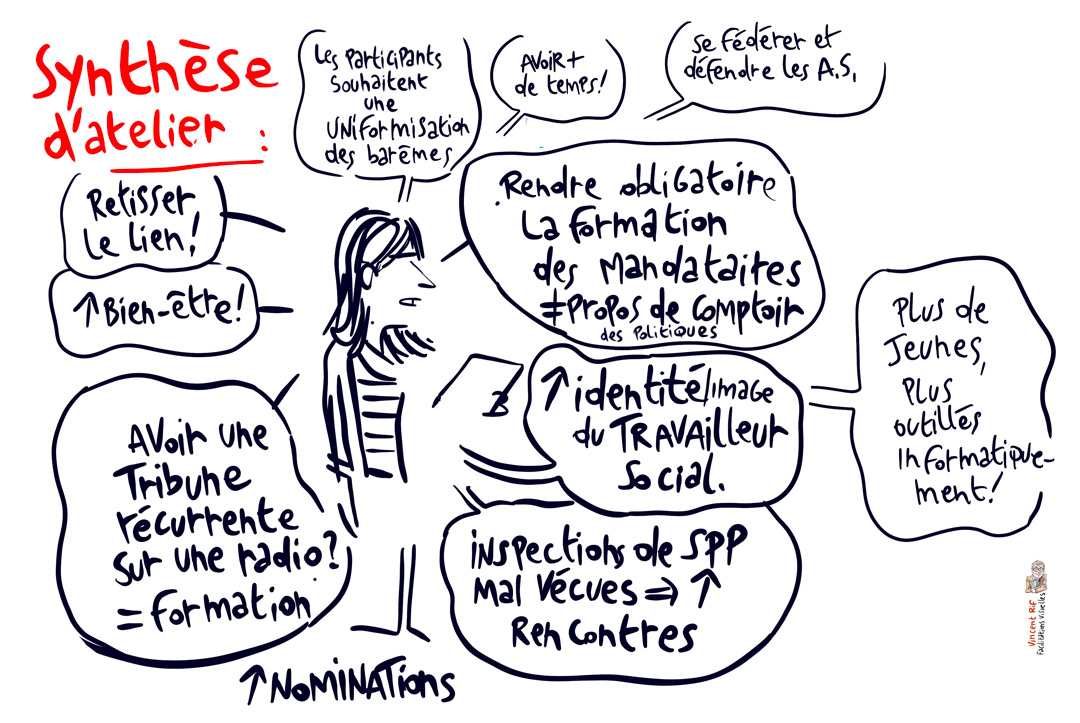 Synthèse
d'atelier :
Les participants
souhaitent
une
uniformisation
des barèmes
Avoir +
de temps!
Se fédérer et
défendre les A.S.
Retisser
le lien!
↑ Bien-être!
Rendre obligatoire
la formation
des mandataires
≠ Propos de comptoir
des politiques
↑ identité/image
du travailleur
social.
Plus de
jeunes,
plus
outillés
informatique-
ment!
Avoir une
tribune
récurrente
sur une radio?
= formation
inspections de SPP
mal vécues ⇒ ↑
rencontres
↑ Nominations
Vincent Rif
Facilitations visuelles